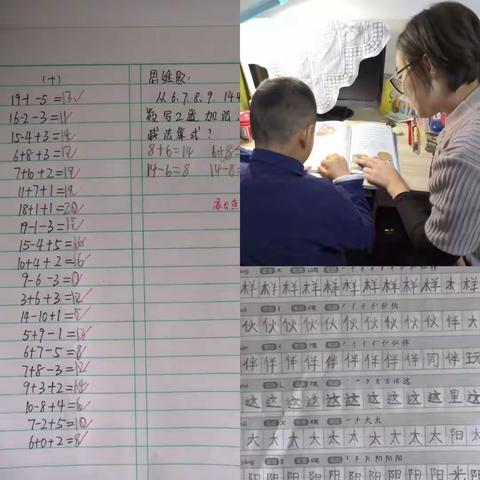 (十)
19-1-5=13
16-2-3=11
15-4+3=14
6+8+3=17
7+10+2=19
11+7+1=19
18+1+1=20
19-1-3=15
15-4+5=16
10+4+2=16
9-6-3=0
3+6+3=12
14-10+1=5
5+9-1=13
6+7-5=8
7+8-3=12
9+3+2=14
10-8+4=6
7-2+5=10
6+0+2=8
思维题：
从6、7、8、9、14
数写2道加法
减法算式？
8+6=14 6+8
14-6=8 14-8
样样样样样样样样木样
伙伙伙伙伙伙伙伙伙伴大
伴伴伴伴伴伴伴伴伴同伴玩
这这这这这这这这这这里这
太太太太太太太太太太阳太
阳阳阳阳阳阳阳阳阳阳光